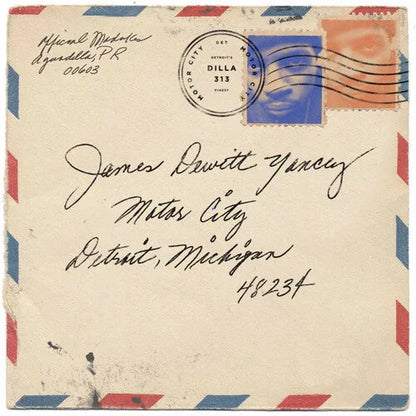 Official Midas Kev
Aguadilla, PR
00603
MOTOR CITY
DET
MOTOR CITY
DETROIT'S
DILLA
313
FINEST
James Dewitt Yancey
Motor City
Detroit, Michigan
48234